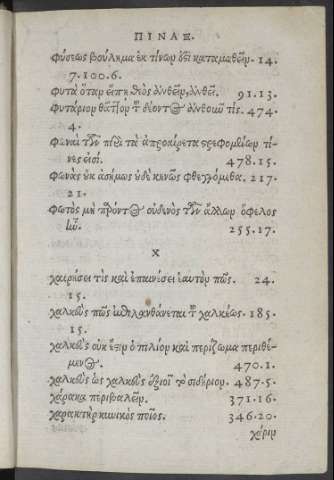 ΠΙΝΑΞ.
φύσεως βούλημα ἐκ τίνων δεῖ καταμαθεῖν. 14.
7.100.6.
φυτὰ ὅταν εἴπῃ θεὸς ἀνθεῖν, ἀνθεῖ. 91.13.
φυτάριον θᾶττον τοῦ δέοντος ἀνθοῦν τίς. 474.
4.
φωναὶ τῶν περὶ τὰ ἀπροαίρετα τίνες
νες εἰσί. 478.15.
φωνὰς οὐκ ἀσήμως οὐδὲ κενῶς φθεγγόμεθα. 217.
21.
φωτὸς μὴ παρόντος οὐδενὸς τῶν ἄλλων ὄφελος
ἦν. 255.17.
Χ
χαιρήσει τίς καὶ ἐπαινέσει ἑαυτὸν πῶς. 24.
15.
χαλκεὺς πῶς ἐπιλανθάνεται τοῦ χαλκέως. 185.
15.
χαλκεὺς οὐκ ἔστιν ὁ πιλίον καὶ περίζωμα περιθέ-
μενος. 470.1.
χαλκεὺς ὡς χαλκεὺς ἀξιοῖ τὸ σιδήριον. 487.5.
χάρακα περιβαλεῖν. 371.16.
χαρακτὴρ κυνικὸς ποῖος. 346.20.
χάριν